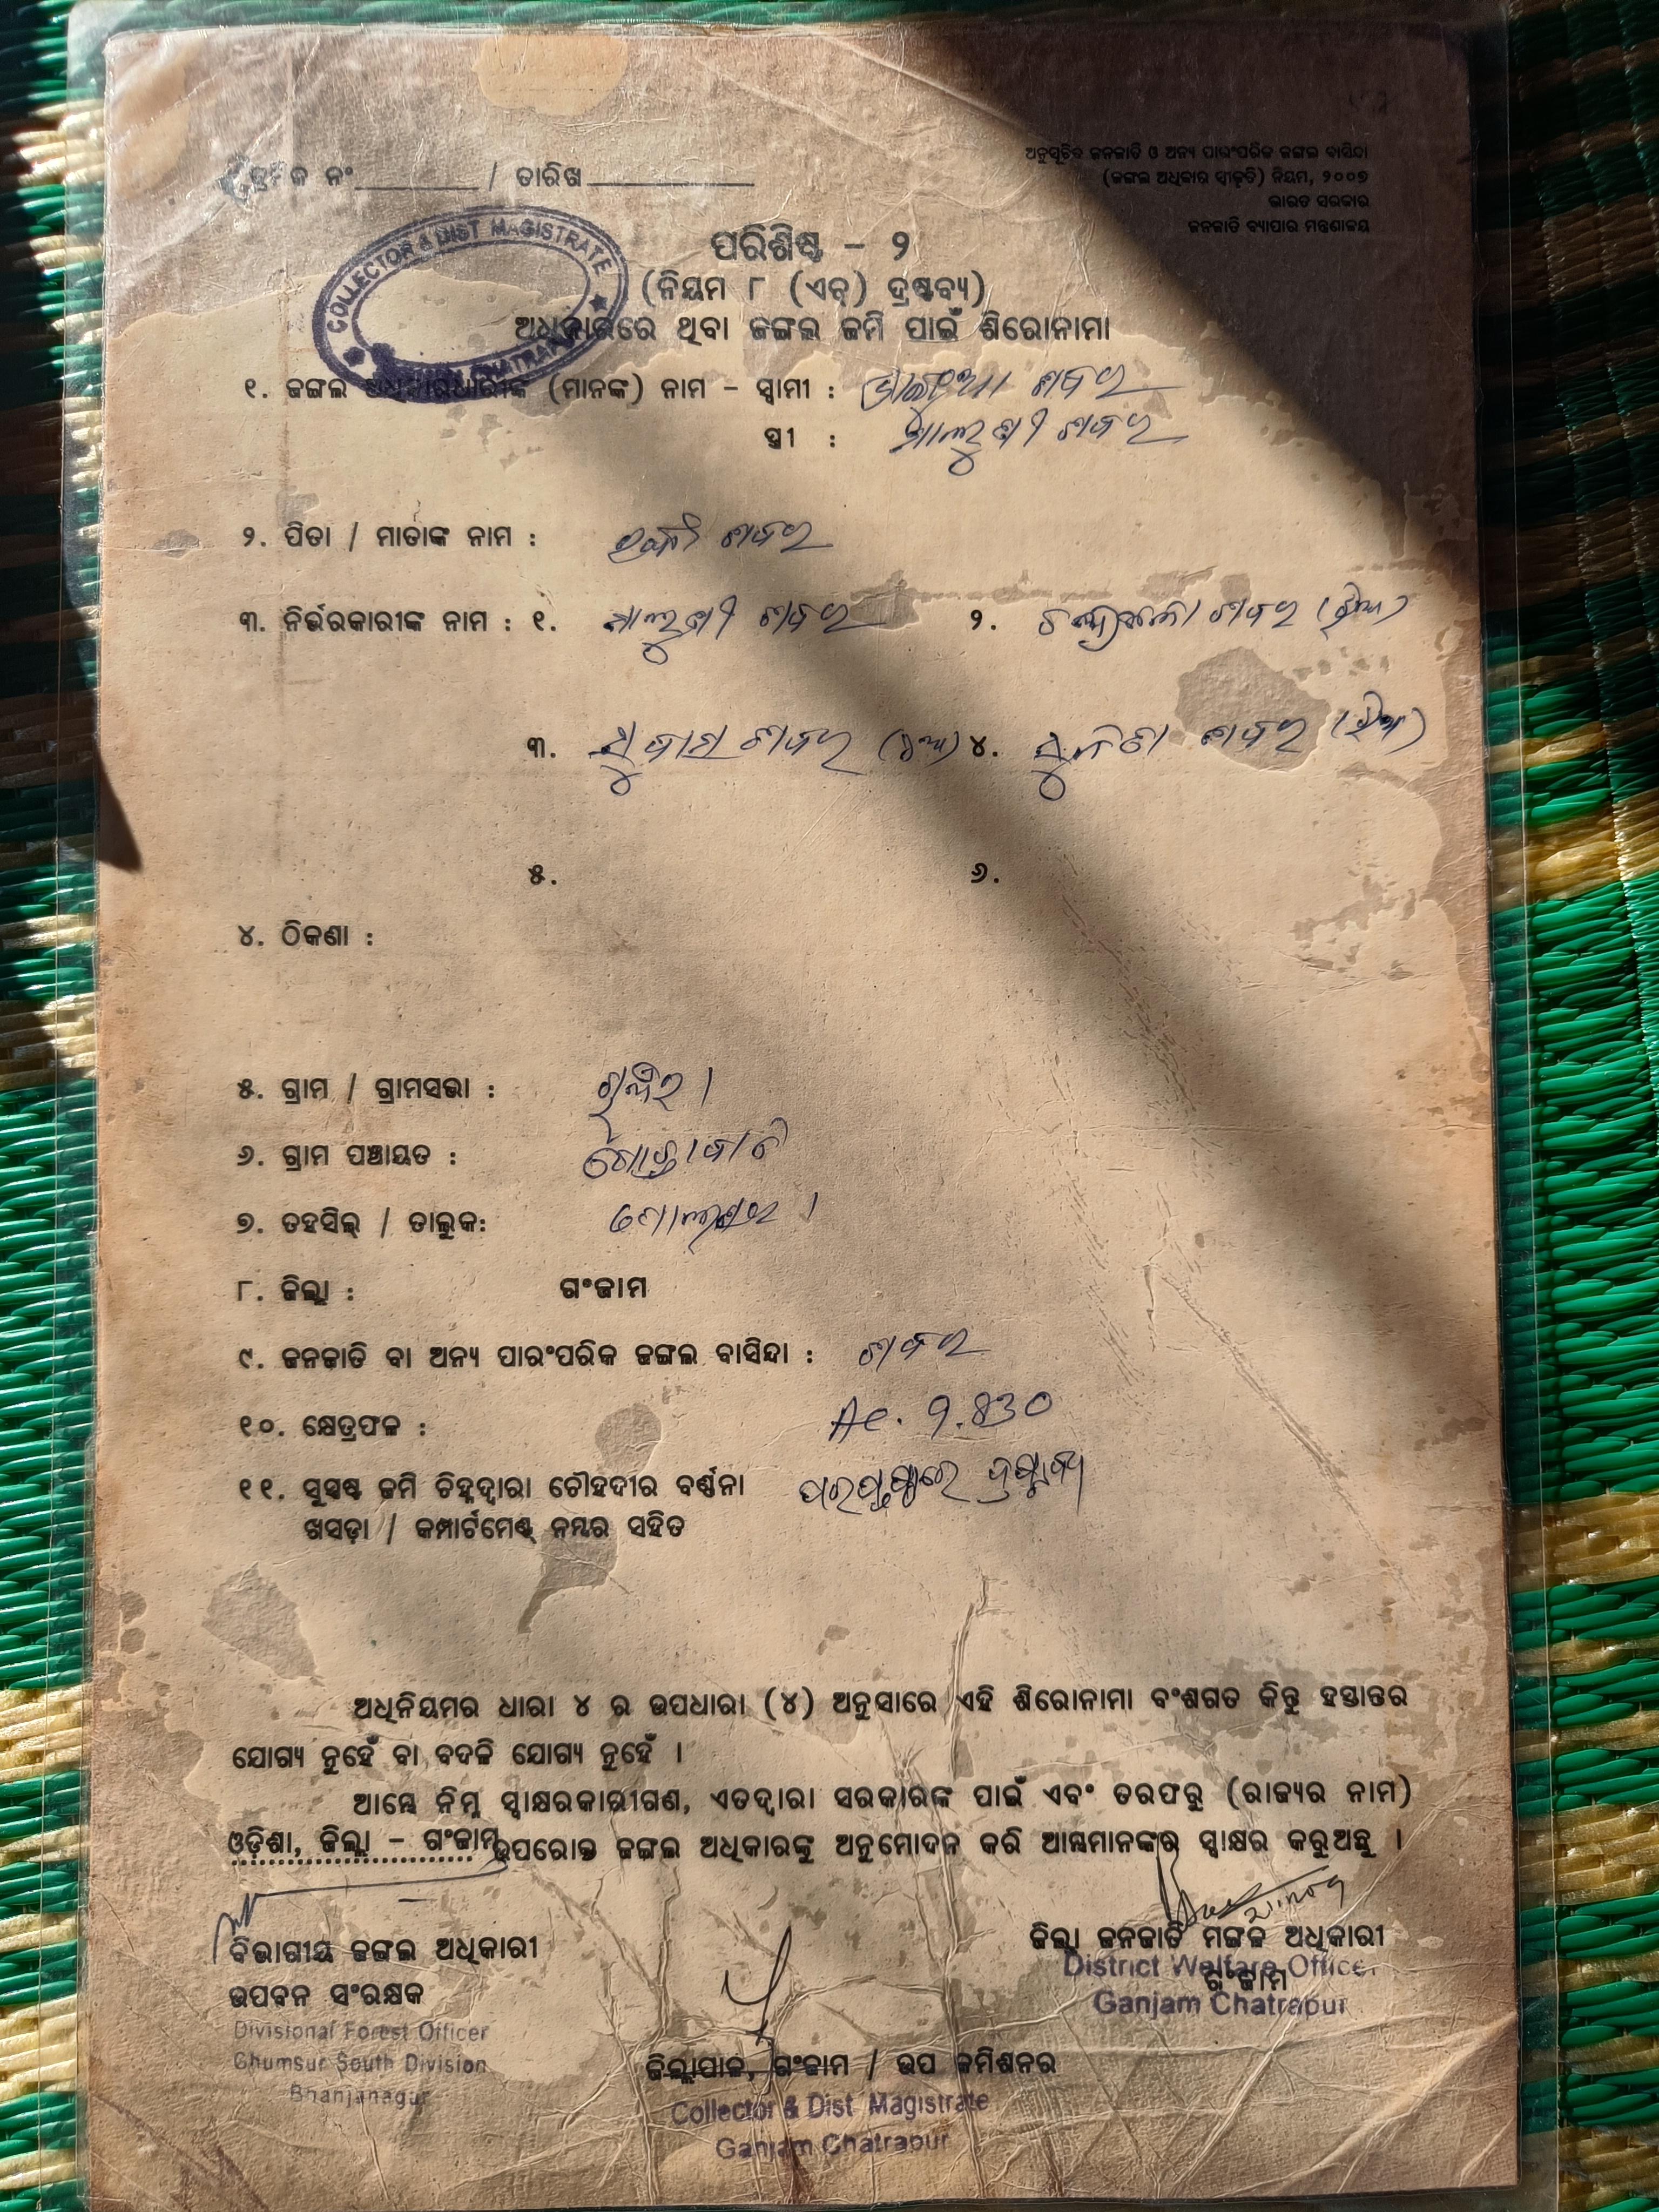 କ୍ରମିକ ନଂ / ତାରିଖ
ଅନୁସୂଚିତ ଜନଜାତି ଓ ଅନ୍ୟ ପାରଂପରିକ ଜଙ୍ଗଲ ବାସିନ୍ଦା
(ଜଙ୍ଗଲ ଅଧିକାର ସ୍ୱୀକୃତି) ନିୟମ, ୨୦୦୭
ଭାରତ ସରକାର
ଜନଜାତି ବ୍ୟାପାର ମନ୍ତ୍ରଣାଳୟ
COLLECTOR & DIST MAGISTRATE
ପରିଶିଷ୍ଟ - ୨
(ନିୟମ ୮ (ଏଚ୍) ଦ୍ରଷ୍ଟବ୍ୟ)
ଅଧିକାରରେ ଥିବା ଜଙ୍ଗଲ ଜମି ପାଇଁ ଶିରୋନାମା
୧. ଜଙ୍ଗଲ ଅଧିକାରଧାରୀଙ୍କ (ମାନଙ୍କ) ନାମ - ସ୍ୱାମୀ : ଶବର
ସ୍ତ୍ରୀ : ଶବର
୨. ପିତା / ମାତାଙ୍କ ନାମ : ଶବର
୩. ନିର୍ଭରକାରୀଙ୍କ ନାମ : ୧. ଶବର ୨. ଶବର (ଝିଅ)
୩. ଶବର (ପୁଅ) ୪. ଶବର (ଝିଅ)
୫. ୬.
୪. ଠିକଣା :
୫. ଗ୍ରାମ / ଗ୍ରାମସଭା :
୬. ଗ୍ରାମ ପଞ୍ଚାୟତ :
୭. ତହସିଲ୍ / ତାଲୁକ:
୮. ଜିଲ୍ଲା : ଗଂଜାମ
୯. ଜନଜାତି ବା ଅନ୍ୟ ପାରଂପରିକ ଜଙ୍ଗଲ ବାସିନ୍ଦା : ଶବର
୧୦. କ୍ଷେତ୍ରଫଳ : Ac.
୧୧. ସୁସ୍ପଷ୍ଟ ଜମି ଚିହ୍ନଦ୍ୱାରା ଚୌହଦୀର ବର୍ଣ୍ଣନା ପରପୃଷ୍ଠାରେ ଦ୍ରଷ୍ଟବ୍ୟ
ଖସଡ଼ା / କମ୍ପାର୍ଟମେଣ୍ଟ୍ ନମ୍ବର ସହିତ
ଅଧିନିୟମର ଧାରା ୪ ର ଉପଧାରା (୪) ଅନୁସାରେ ଏହି ଶିରୋନାମା ବଂଶଗତ କିନ୍ତୁ ହସ୍ତାନ୍ତର
ଯୋଗ୍ୟ ନୁହେଁ ବା ବଦଳି ଯୋଗ୍ୟ ନୁହେଁ ।
ଆମ୍ଭେ ନିମ୍ନ ସ୍ୱାକ୍ଷରକାରୀଗଣ, ଏତଦ୍ୱାରା ସରକାରଙ୍କ ପାଇଁ ଏବଂ ତରଫରୁ (ରାଜ୍ୟର ନାମ)
ଓଡ଼ିଶା, ଜିଲ୍ଲା - ଗଂଜାମ ଉପରୋକ୍ତ ଜଙ୍ଗଲ ଅଧିକାରଙ୍କୁ ଅନୁମୋଦନ କରି ଆମ୍ଭମାନଙ୍କର ସ୍ୱାକ୍ଷର କରୁଅଛୁ ।
ବିଭାଗୀୟ ଜଙ୍ଗଲ ଅଧିକାରୀ
ଉପବନ ସଂରକ୍ଷକ
Divisional Forest Officer
Ghumsur South Division
Bhanjanagar
ଜିଲ୍ଲା ଜନଜାତି ମଙ୍ଗଳ ଅଧିକାରୀ
ଗଂଜାମ
District Welfare Officer
Ganjam Chatrapur
ଜିଲ୍ଲାପାଳ, ଗଂଜାମ / ଉପ କମିଶନର
Collector & Dist Magistrate
Ganjam Chatrapur